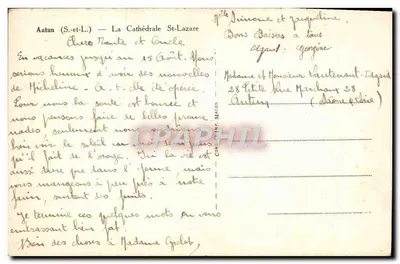 Autun (S.-et-L.) — La Cathédrale St-Lazare
Chers Tante et Oncle
En vacances jusqu'au 15 Août. Nous
serions heureux d'avoir des nouvelles
de Micheline. A-t-elle été opérée
Pour nous la santé est bonne et
nous pensons faire de belles prome
nades, seulement nous
voir le soleil un
qu'il fait de l'orage. Ici la vie est
aussi chère que dans l' mais
nous mangeons à peu près à notre
faim, surtout les fruits.
Je termine ces quelques mots en vous
embrassant bien fort.
Bien des choses à Madame
Simone et Jacqueline.
Bons Baisers à tous
Madame et Monsieur Lieutenant
28 Petite Rue Marchaux 28
Autun
(Saône & Loire)
CARTE-PHOTO.COM